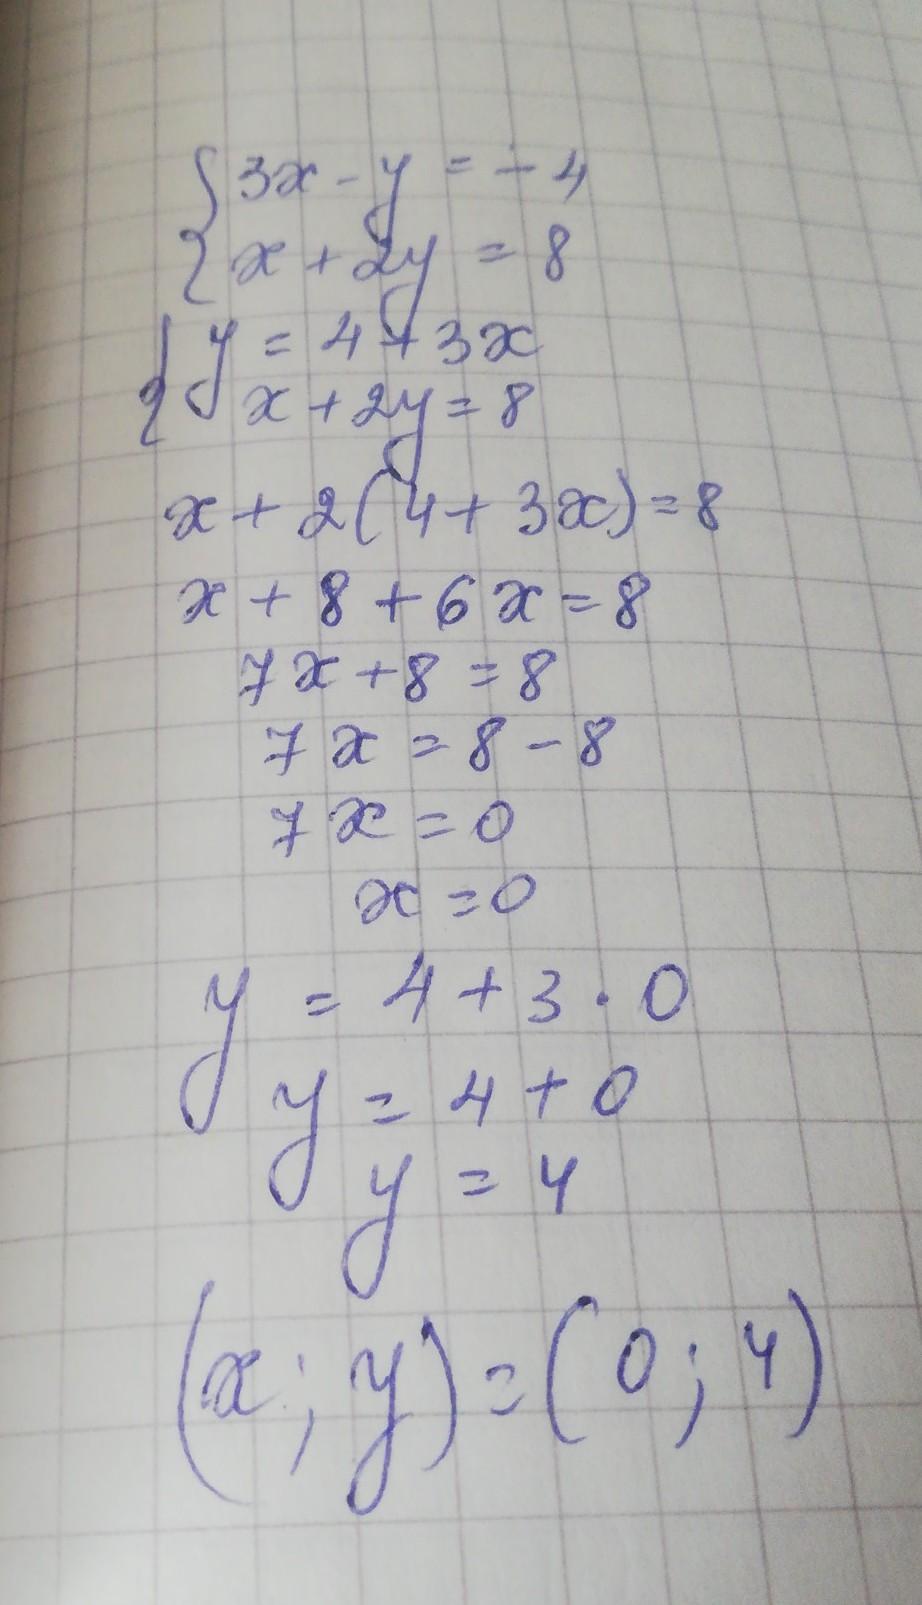 {3x - y = -4
{x + 2y = 8
{y = 4 + 3x
{x + 2y = 8
x + 2(4 + 3x) = 8
x + 8 + 6x = 8
7x + 8 = 8
7x = 8 - 8
7x = 0
x = 0
y = 4 + 3 · 0
y = 4 + 0
y = 4
(x; y) = (0; 4)